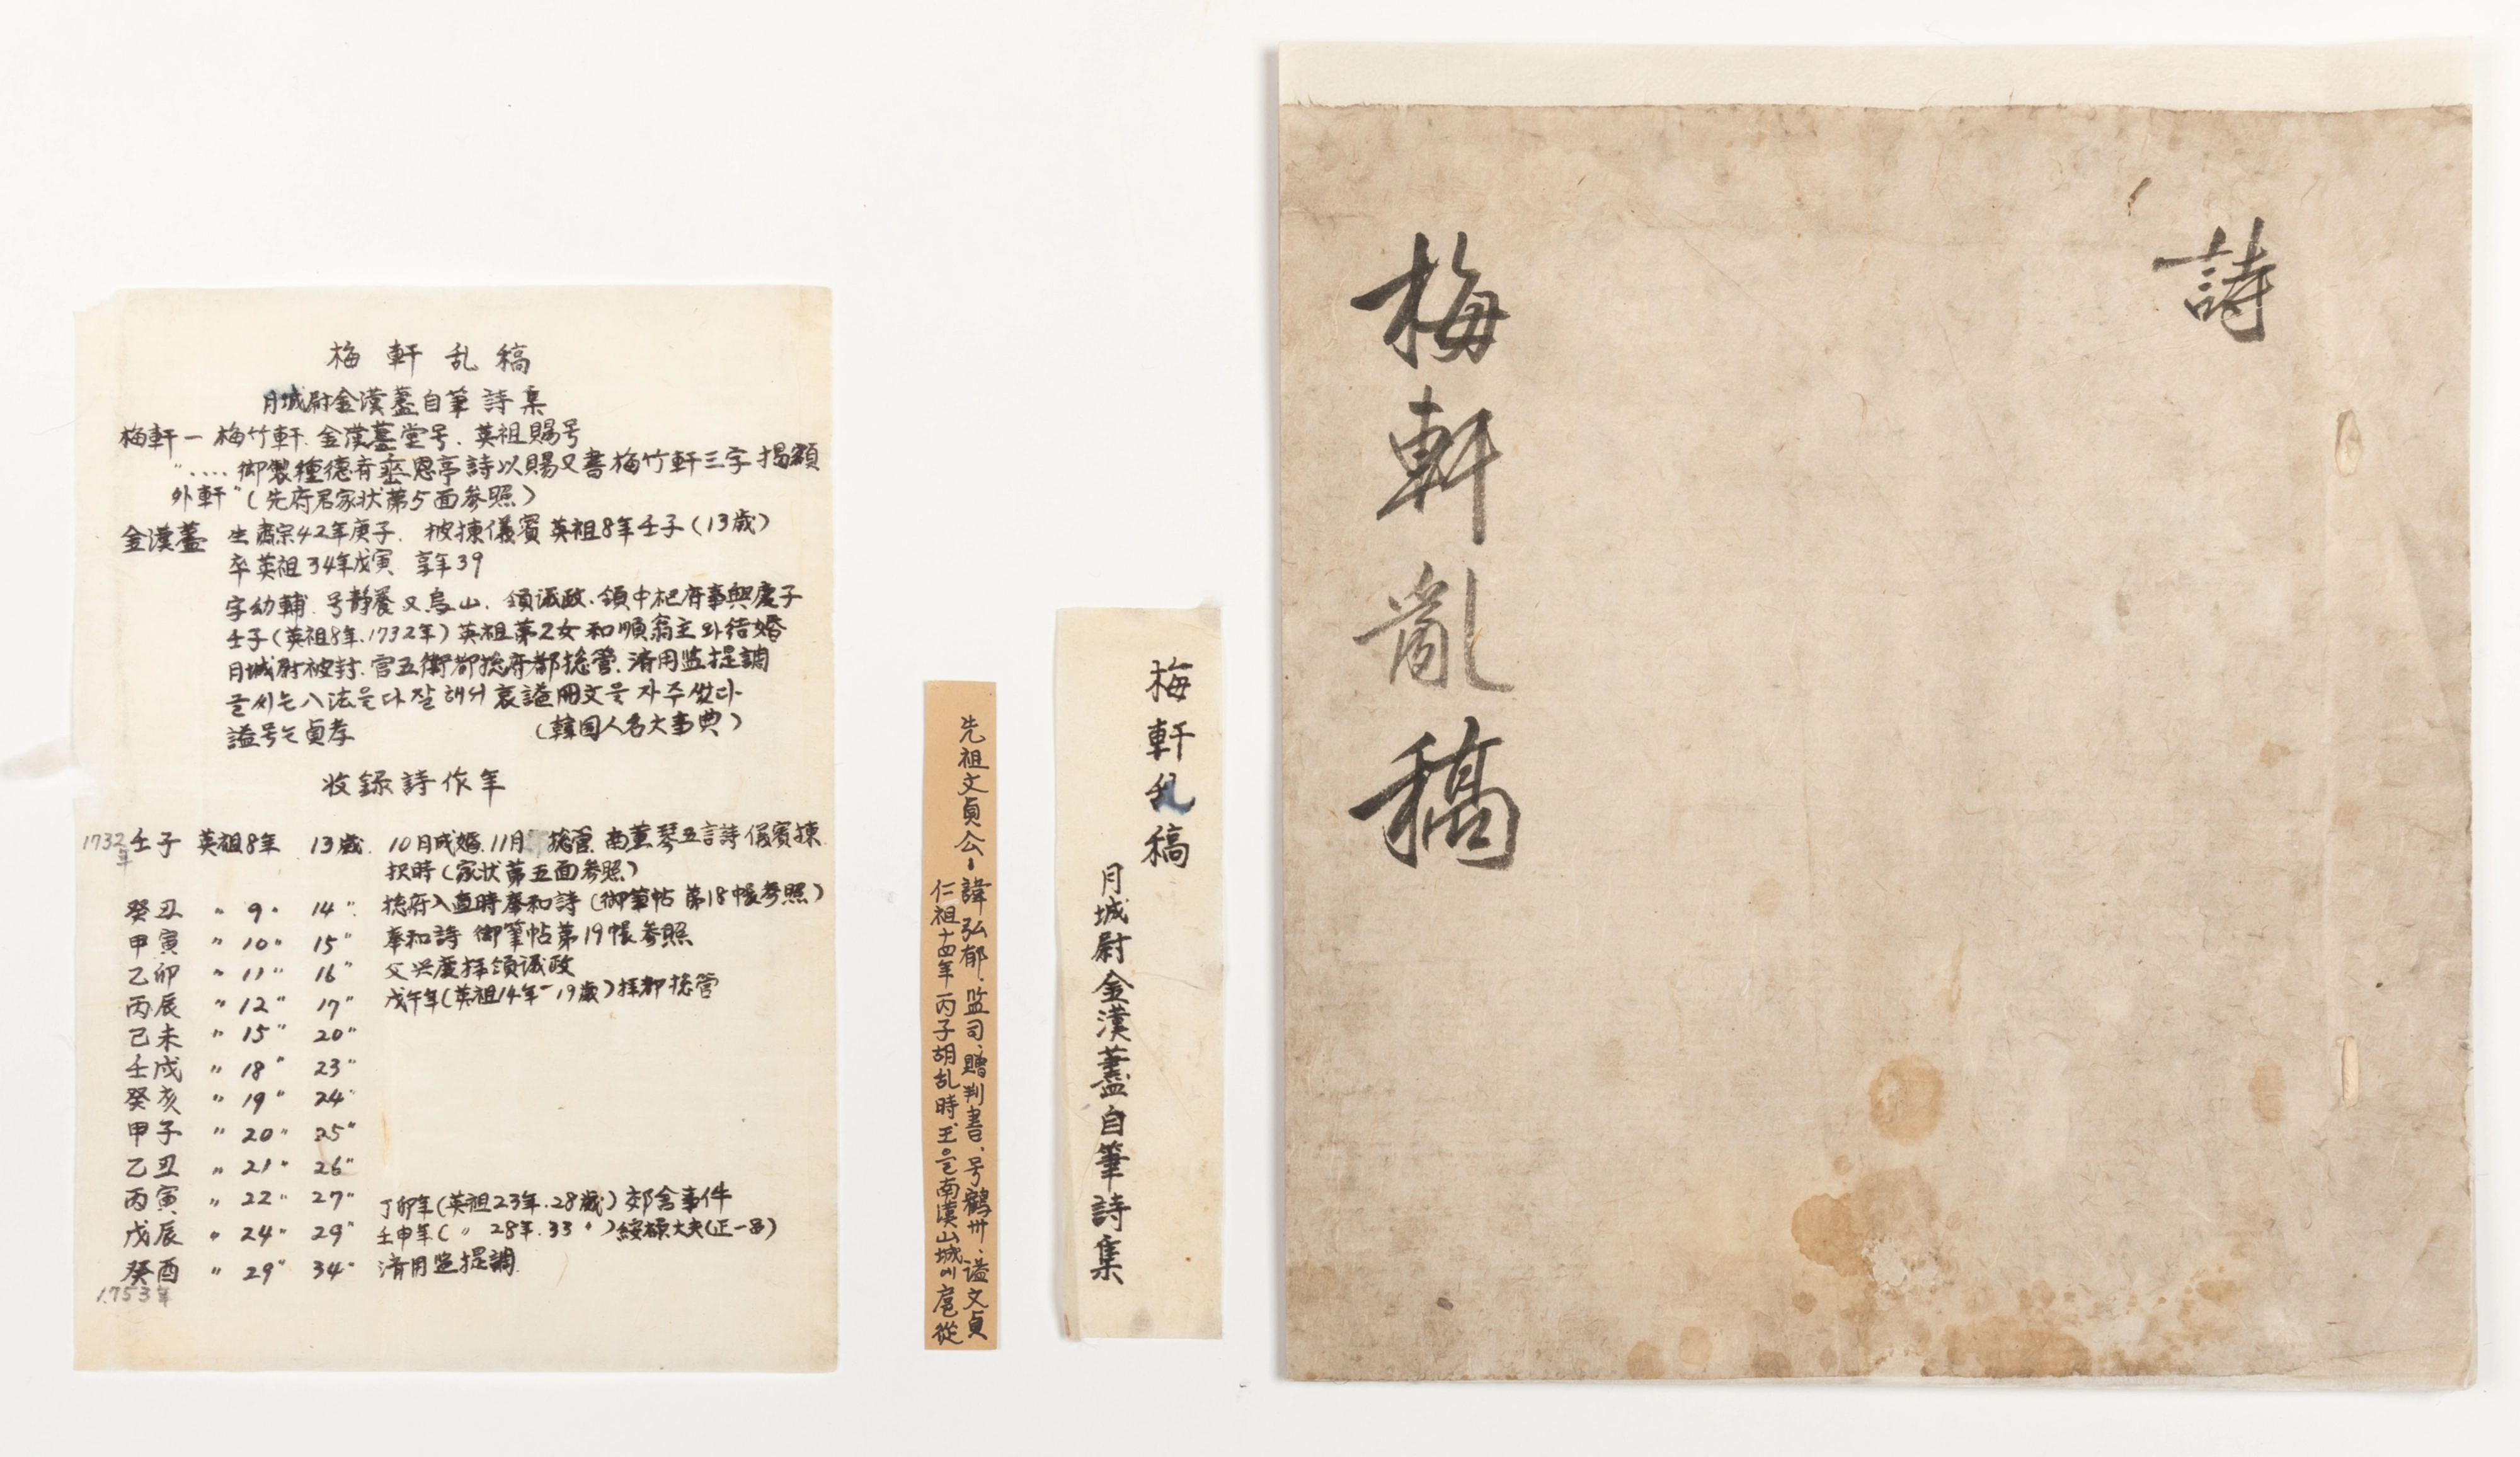 梅軒乱稿
月城尉金漢藎自筆詩集
梅軒ー 梅竹軒. 金漢藎堂号. 英祖賜号
"‥‥御製種德斉垂恩亭詩以賜又書梅竹軒三字揭額
外軒" (先府君家状第5面参照)
金漢藎 生肅宗42年庚子. 被揀儀賓英祖8年壬子(13歲)
卒英祖34年戊寅 享年39
字幼輔. 号静養又烏山. 領议政. 領中枢府事興慶子
壬子(英祖8年.1732年) 英祖第2女和順翁主와結婚
月城尉被封. 官五衛都捴府都捴管. 済用监提調
글씨는八法을다잘해서 哀謚冊文을자주썼다
謚号는貞孝 (韓国人名大事典)
收錄詩作年
1732年 壬子 英祖8年 13歲. 10月成婚. 11月 捴管. 南薰琴五言詩儀賓揀
択時(家状第五面参照)
癸丑 〃 9〃 14〃 捴府入直時奉和詩(御筆帖 第18帳参照)
甲寅 〃 10〃 15〃 奉和詩 御筆帖第19帳参照
乙卯 〃 11〃 16〃 父興慶拝領议政
丙辰 〃 12〃 17〃 戊午年(英祖14年-19歲)拝都捴管
己未 〃 15〃 20〃
壬戌 〃 18〃 23〃
癸亥 〃 19〃 24〃
甲子 〃 20〃 25〃
乙丑 〃 21〃 26〃
丙寅 〃 22〃 27〃 丁卯年(英祖23年.28歲) 郊舍事件
戊辰 〃 24〃 29〃 壬申年( 〃 28年.33 〃)綏禄大夫(正一品)
癸酉 〃 29〃 34〃 済用监提調
1753年
先祖文貞公ー諱弘郁. 监司. 贈判書. 号鶴州. 謚文貞
仁祖十四年丙子胡乱時王을南漢山城에扈從
梅軒乱稿
月城尉金漢藎自筆詩集
詩
梅軒亂稿